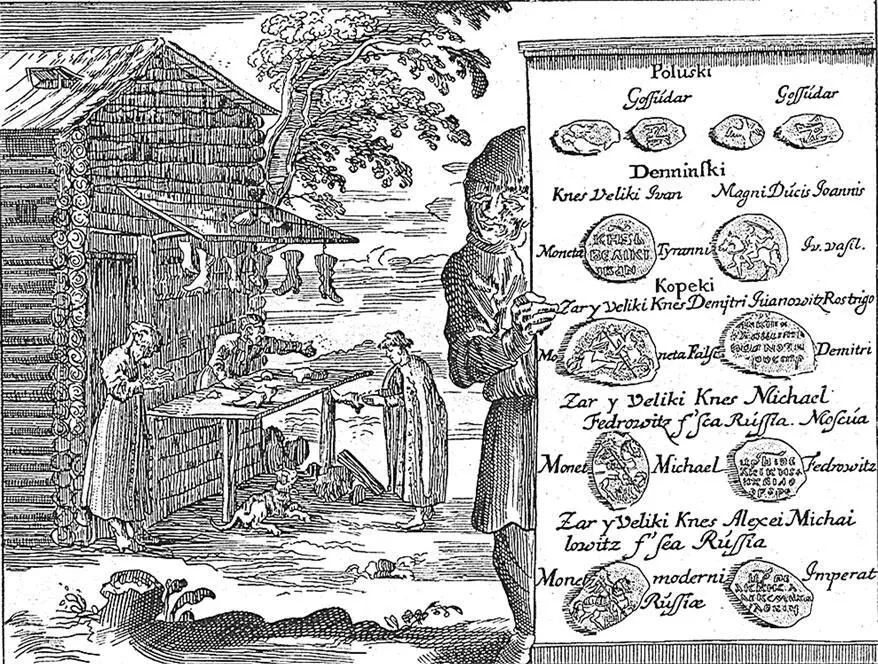 Poluski
Gossúdar Gossúdar
Denninski
Knes Veliki Ivan Magni Dúcis Joannis
Moneta Tyranni Iv. vasil.
Kopeki
Zar y Veliki Knes Demitri Iúanowitz Rostrigo
Mo neta Fals Demitri
Zar y Veliki Knes Michael
Fedrowitz f'sea Rússia. Moscúa
Monet Michael Fedrowitz
Zar y Veliki Knes Alexei Michai
lowitz f'sea Rússia
Monet moderni Imperat
Rússiæ